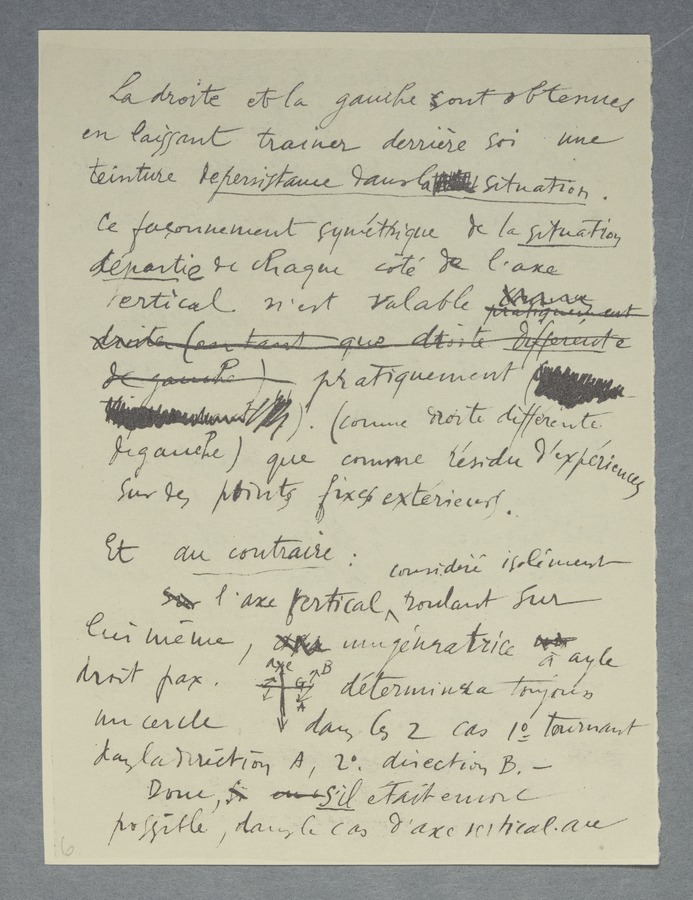 La droite et la gauche sont obtenues
en laissant trainer derrière soi une
teinture de persistance dans la situation.
Ce façonnement symétrique de la situation
départie de chaque côté de l'axe
vertical n'est valable pratiquement
droite (en tant que droite différente
de gauche) pratiquement (
). (comme droite différente
de gauche) que comme résidu d'expériences
sur des points fixes extérieurs.
Et au contraire :
considéré isolément
Sur l'axe vertical, roulant sur
lui même, une génératrice à angle
droit pax. axe G B A déterminera toujours
un cercle dans les 2 cas 1º tournant
dans la direction A, 2º. direction B. –
Donc, si s'il était encore
possible, dans le cas d'axe vertical au
16